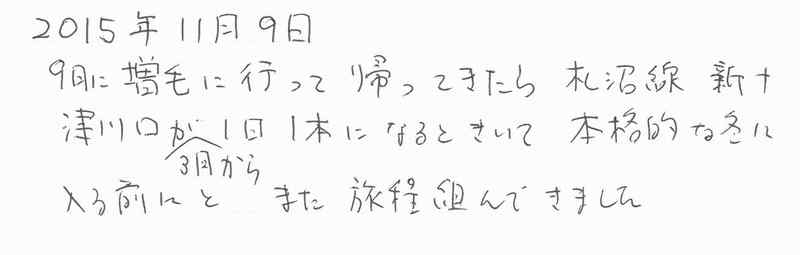 2015年11月9日
9月に増毛に行って帰ってきたら 札沼線 新十
津川口が1日1本になるときいて 本格的な冬に
3月から
入る前にと また旅程組んできました